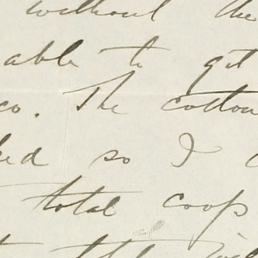 without the
able to get
co. The cotton
so I
total coop